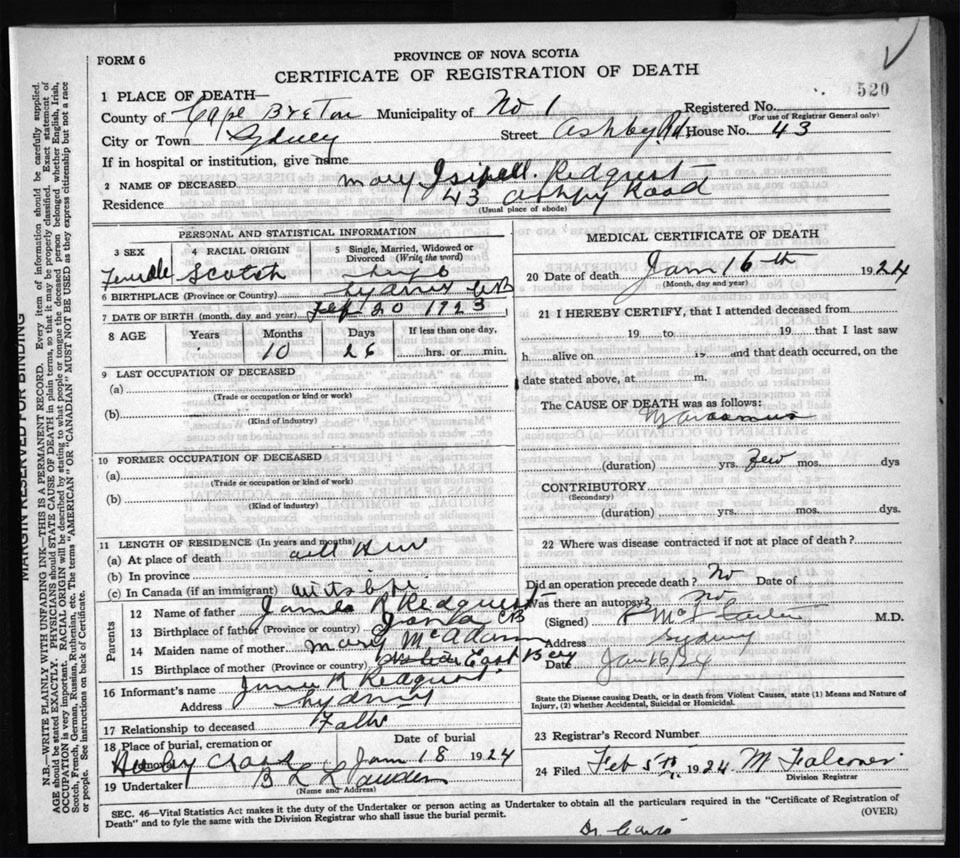 FORM 6
PROVINCE OF NOVA SCOTIA
CERTIFICATE OF REGISTRATION OF DEATH
520
1 PLACE OF DEATH—
County of Cape Breton Municipality of No 1 Registered No.
(For use of Registrar General only)
City or Town Sydney Street Ashby Rd. House No. 43
If in hospital or institution, give name
2 NAME OF DECEASED Mary Redquest
Residence 43 Ashby Road
(Usual place of abode)
PERSONAL AND STATISTICAL INFORMATION
3 SEX 4 RACIAL ORIGIN 5 Single, Married, Widowed or Divorced (Write the word)
Female Scotch
6 BIRTHPLACE (Province or Country) Sydney CB
7 DATE OF BIRTH (month, day and year) 20 1923
8 AGE Years Months Days If less than one day,
10 26 hrs. or min.
9 LAST OCCUPATION OF DECEASED
(a)
(Trade or occupation or kind or work)
(b)
(Kind of industry)
10 FORMER OCCUPATION OF DECEASED
(a)
(Trade or occupation or kind of work)
(b)
(Kind of industry)
11 LENGTH OF RESIDENCE (In years and months)
(a) At place of death all her
(b) In province
(c) In Canada (if an immigrant)
Parents
12 Name of father James R Redquest
13 Birthplace of father (Province or country) CB
14 Maiden name of mother Mary McAdam
15 Birthplace of mother (Province or Country) East Bay
16 Informant's name James R Redquest
Address Sydney
17 Relationship to deceased Father
18 Place of burial, cremation or removal Date of burial
Jan 18 1924
19 Undertaker
(Name and Address)
MEDICAL CERTIFICATE OF DEATH
20 Date of death Jan 16th 1924
(Month, day and year)
21 I HEREBY CERTIFY, that I attended deceased from
19 to 19 that I last saw
h alive on 19 and that death occurred, on the
date stated above, at m.
The CAUSE OF DEATH was as follows:
Marasmus
(duration) yrs. few mos. dys
CONTRIBUTORY
(Secondary)
(duration) yrs. mos. dys.
22 Where was disease contracted if not at place of death?
Did an operation precede death? No Date of
Was there an autopsy? no
(Signed) M.D.
Address Sydney
Date Jan 16/24
State the Disease causing Death, or in death from Violent Causes, state (1) Means and Nature of Injury, (2) whether Accidental, Suicidal or Homicidal.
23 Registrar's Record Number
24 Filed Feb 5th 1924 M Falconer
Division Registrar
SEC. 46—Vital Statistics Act makes it the duty of the Undertaker or person acting as Undertaker to obtain all the particulars required in the "Certificate of Registration of
Death" and to fyle the same with the Division Registrar who shall issue the burial permit. (OVER)
MARGIN RESERVED FOR BINDING
N.B.—WRITE PLAINLY WITH UNFADING INK—THIS IS A PERMANENT RECORD. Every item of information should be carefully supplied.
AGE should be stated EXACTLY. PHYSICIANS should STATE CAUSE OF DEATH in plain terms, so that it may be properly classified. Exact statement of
OCCUPATION is very important. RACIAL ORIGIN will be described by stating to what people or tongue the deceased person belonged whether English, Irish,
Scotch, French, German, Russian, Ruthenian, etc. The terms "AMERICAN" OR "CANADIAN" MUST NOT BE USED as they express citizenship but not a race
or people. See instructions on back of Certificate.